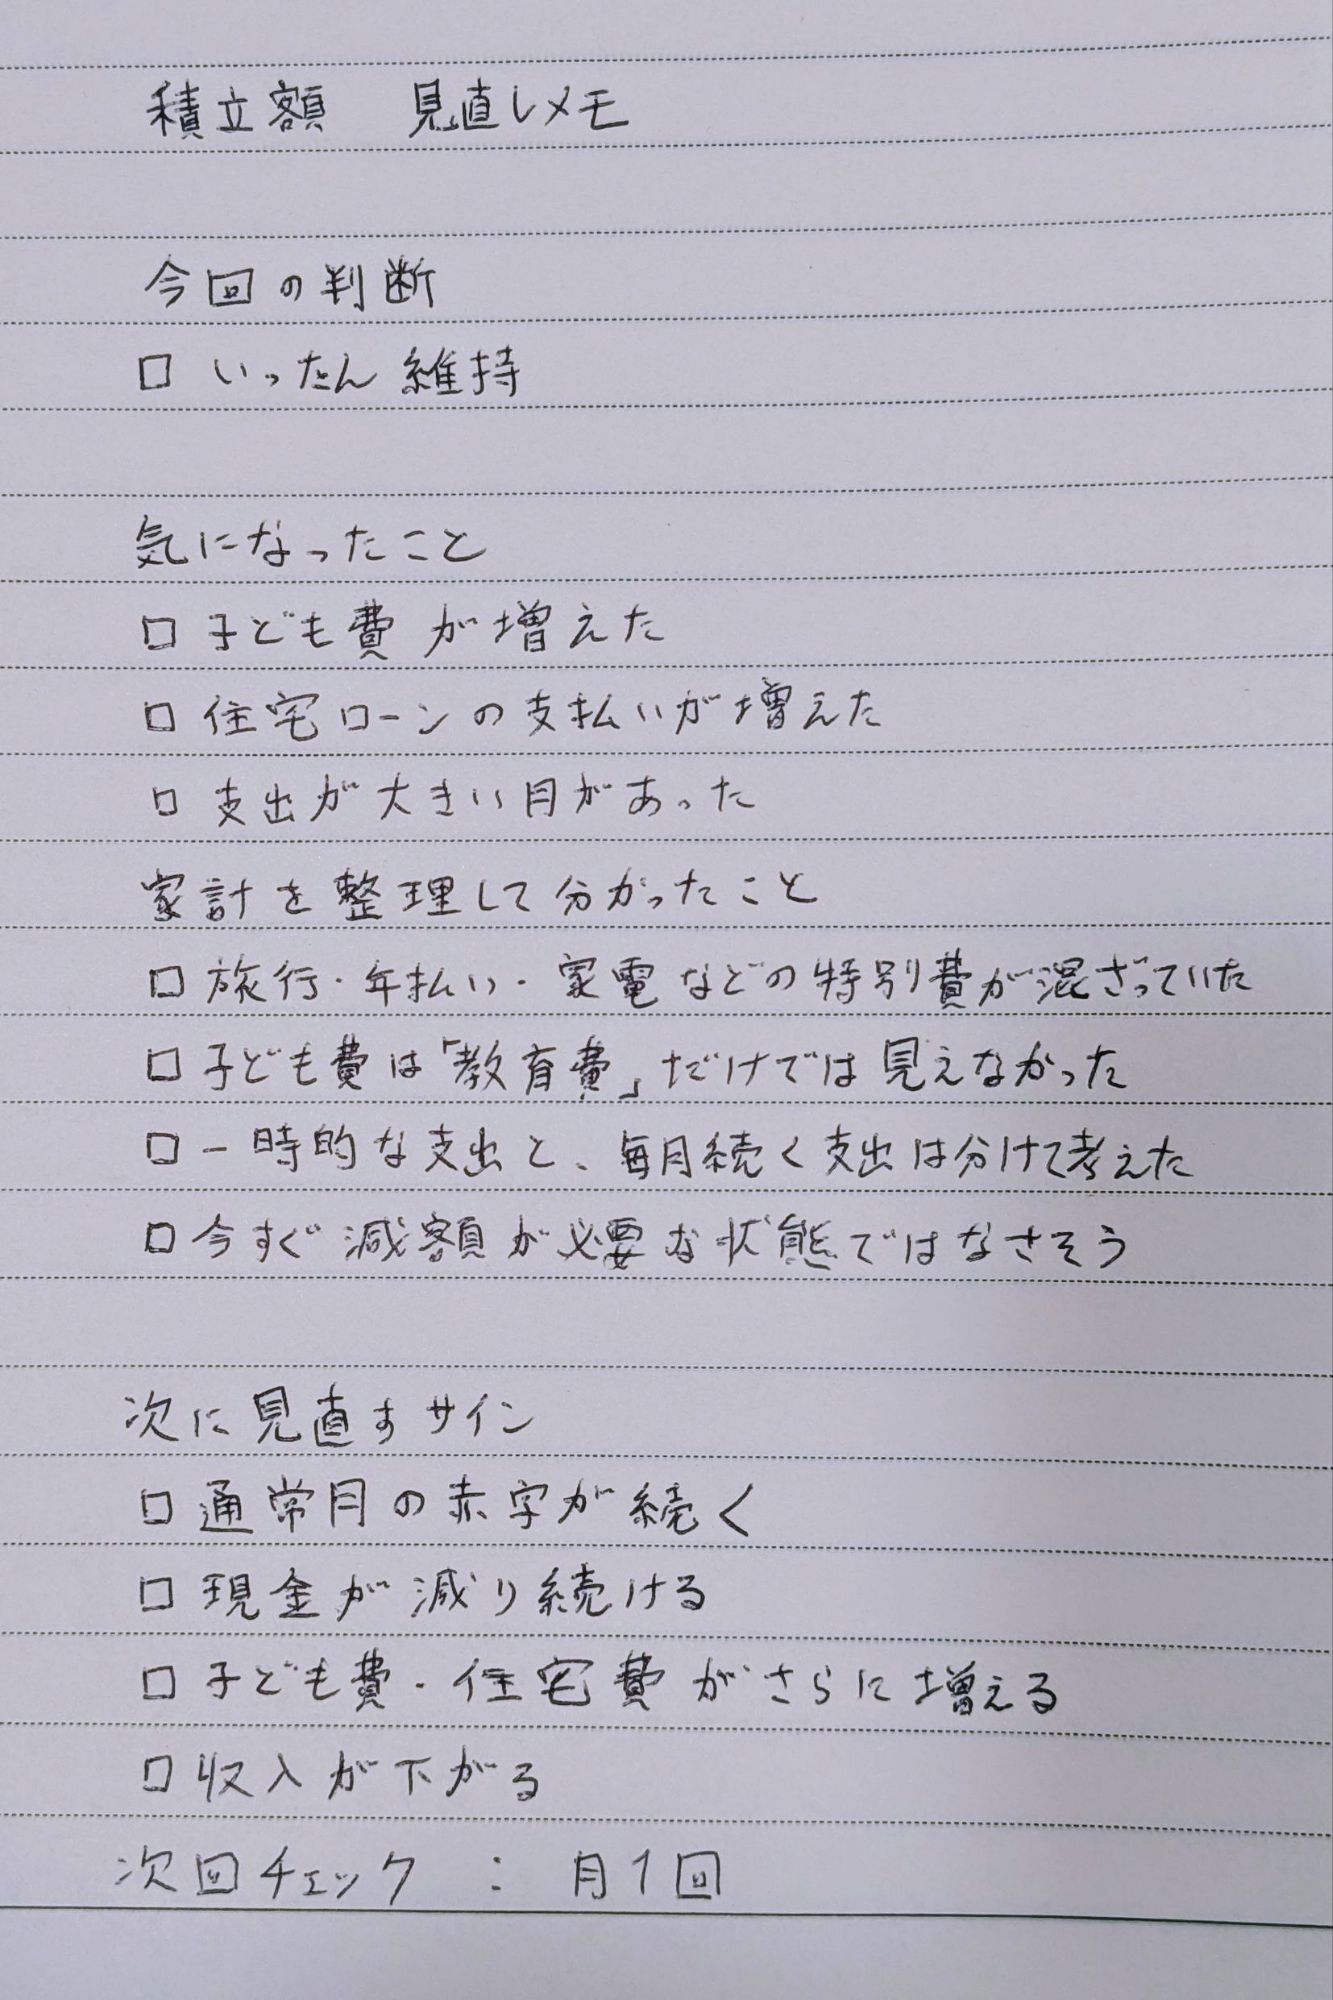 積立額 見直しメモ
今回の判断
□ いったん維持
気になったこと
□ 子ども費が増えた
□ 住宅ローンの支払いが増えた
□ 支出が大きい月があった
家計を整理して分かったこと
□ 旅行・年払い・家電などの特別費が混ざっていた
□ 子ども費は「教育費」だけでは見えなかった
□ 一時的な支出と、毎月続く支出は分けて考えた
□ 今すぐ減額が必要な状態ではなさそう
次に見直すサイン
□ 通常月の赤字が続く
□ 現金が減り続ける
□ 子ども費・住宅費がさらに増える
□ 収入が下がる
次回チェック : 月1回